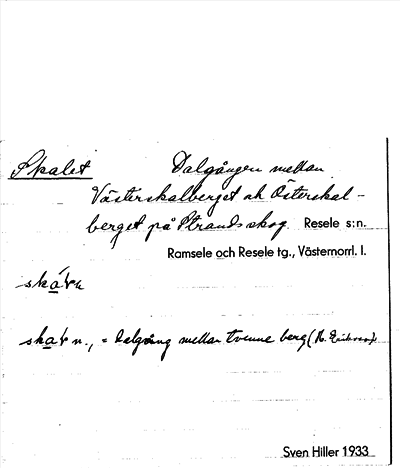 Skalet Dalgången mellan
Västerskalberget och Österskal-
berget på Strands skog. Resele s:n.
Ramsele och Resele tg., Västernorrl. l.
n., = dalgång mellan tvenne berg
Sven Hiller 1933